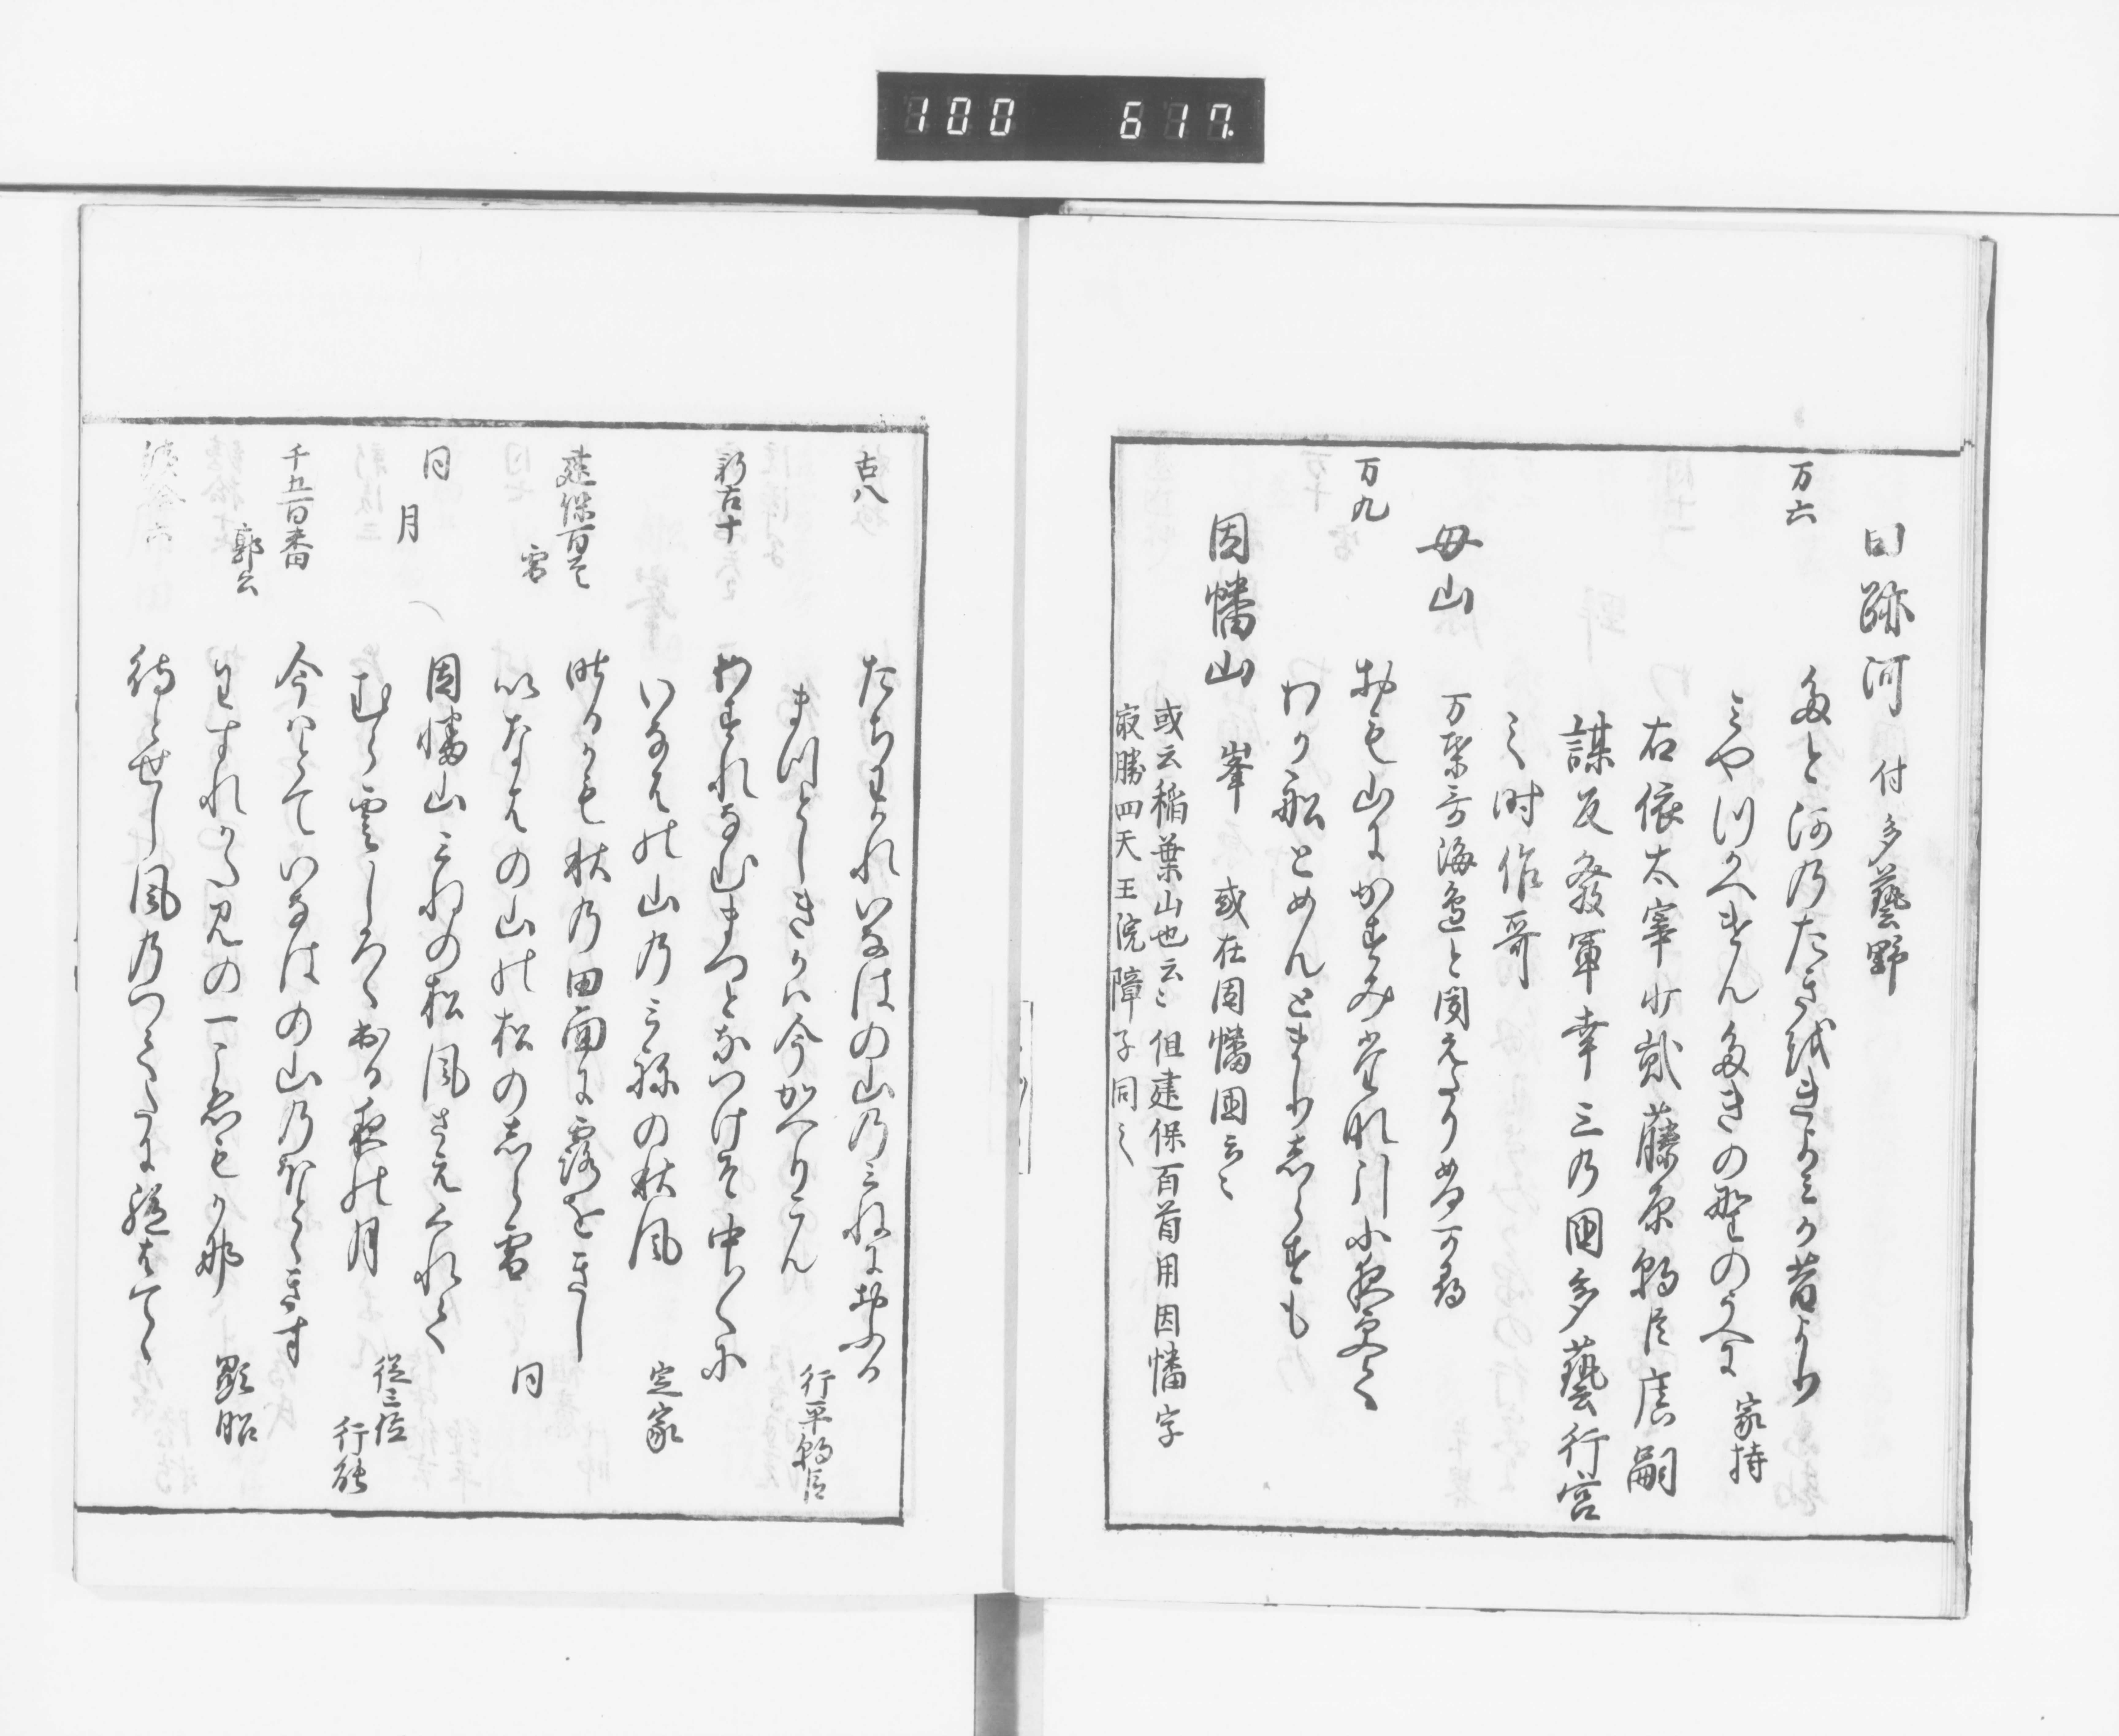 100 617
田跡河 付多藝野
万六
たと河のたきをきよみか昔より
みやつかへけんたきの野のうへに 家持
右依太宰少貳藤原朝臣広嗣
謀反發軍幸三乃國多藝行宮
之時作哥
母山 万葉哥海邊と聞えたり如何可尋
万九
おも山にかすみたなれ引小夜更て
わか船とめんとまりしらすも
因幡山 峯 或在因幡國云々
或云稲葉山也云々但建保百首用因幡字
最勝四天王院障子同之
古八
たちわかれいなはの山のみねにおふる
まつとしきかは今かへりこん 行平朝臣
新古十
わすれなむまつとなつけそ中〳〵に
いなはの山のみねの秋風 定家
建保百首
昨日かも秋の田面に露をきし
雪
いなはの山の松のしら雪 同
同
因幡山みねの松風さえくれて
月
むら雲しろくおる夜の月 従三位行能
千五百番
今はとていなはの山のほとゝきす
郭公
わすれかたみの一こゑもかな 顕昭
続拾六
待とせし風のつてたに